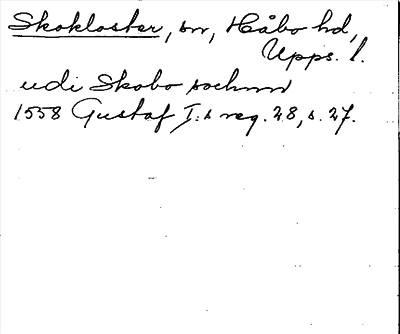 Skokloster, sn, Håbo hd,
Upps. l.
udi Skobo sochnn
1558 Gustaf I:s reg. 28, s. 27.